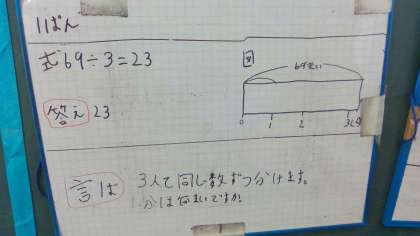 11ばん
式 69÷3=23
図
69まい
答え 23
0 1 2 3(人)
言ば 3人で同じ数ずつ分けます。
1分は何まいですか